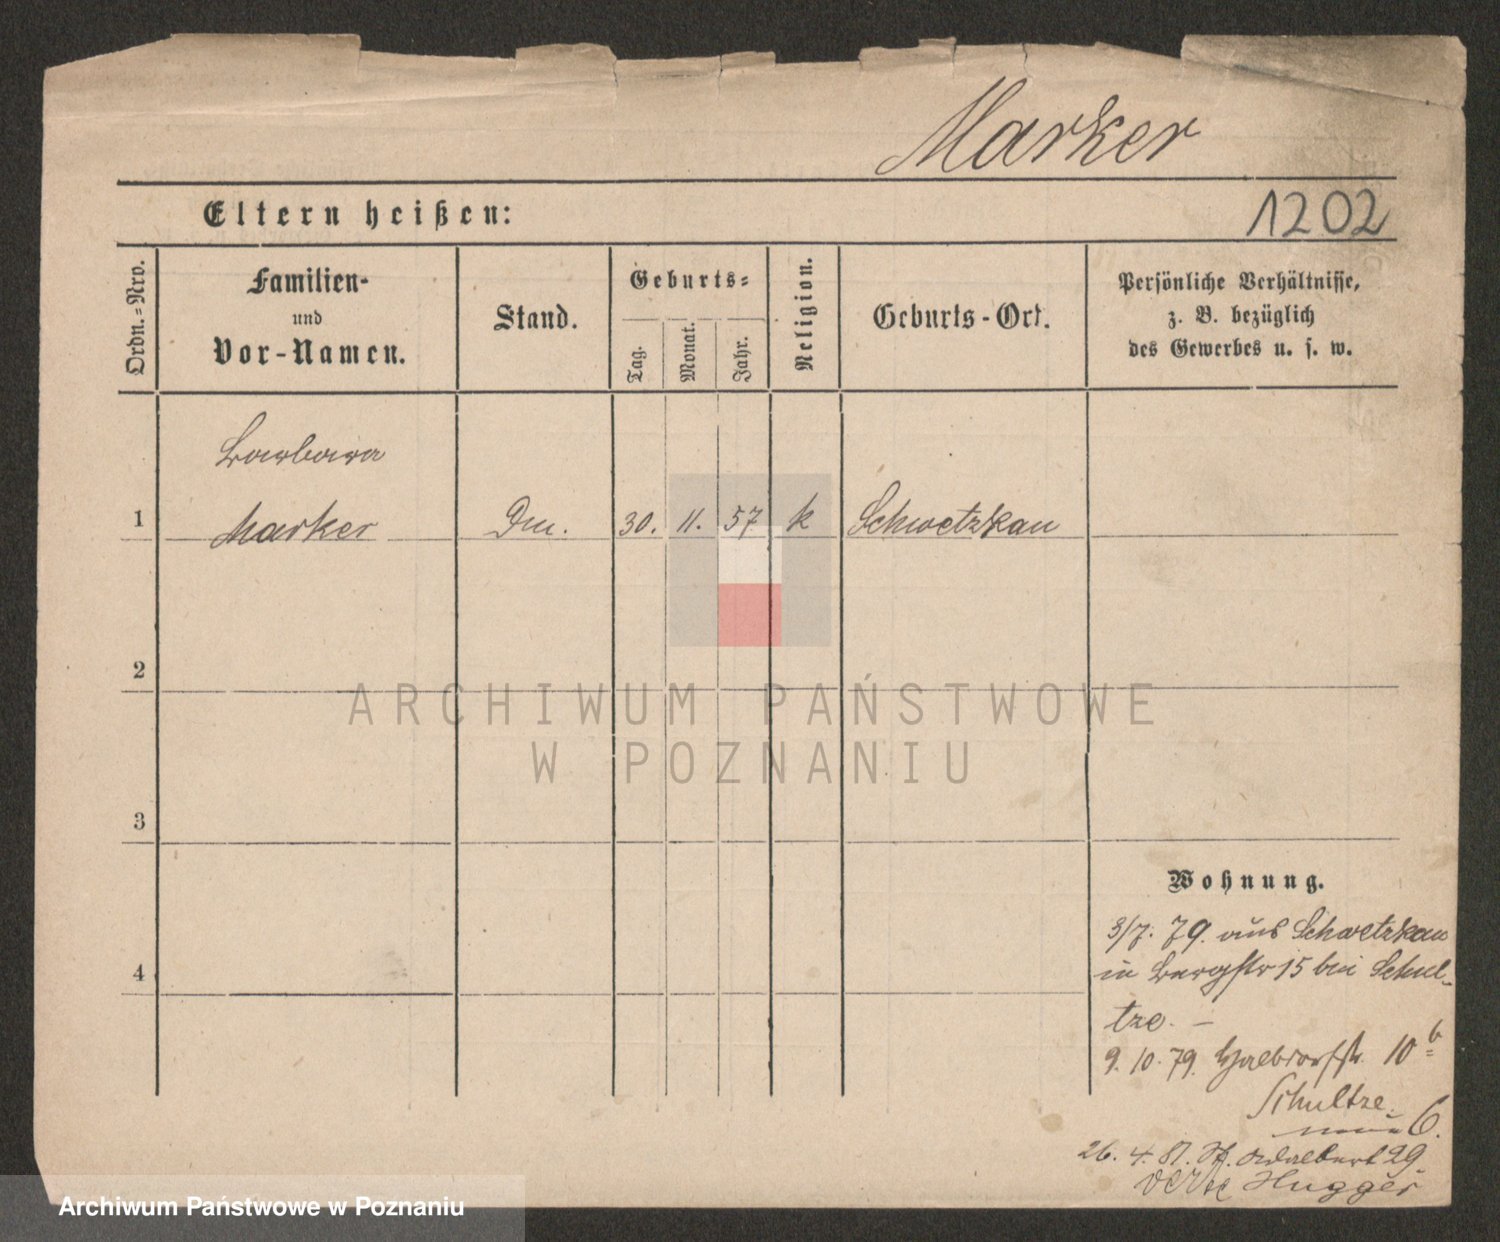 Marker
Eltern heißen:
1202
Ordn.-Nro.
Familien-
und
Vor-Namen.
Stand.
Geburts-
Tag.
Monat.
Jahr.
Religion.
Geburts-Ort.
Persönliche Verhältnisse,
z. B. bezüglich
des Gewerbes u. s. w.
Barbara
1 Marker Dm. 30. 11. 57 k Schwetzkau
2
3
4
Wohnung.
3/7. 79. aus Schwetzkau
in Bergstr 15 bei Schul-
tze. –
9. 10. 79. Halbdorfstr. 10 b
Schultze.
6.
26. 4. 81. St. Adalbert 29
verte Hugger
ARCHIWUM PAŃSTWOWE
W POZNANIU
Archiwum Państwowe w Poznaniu